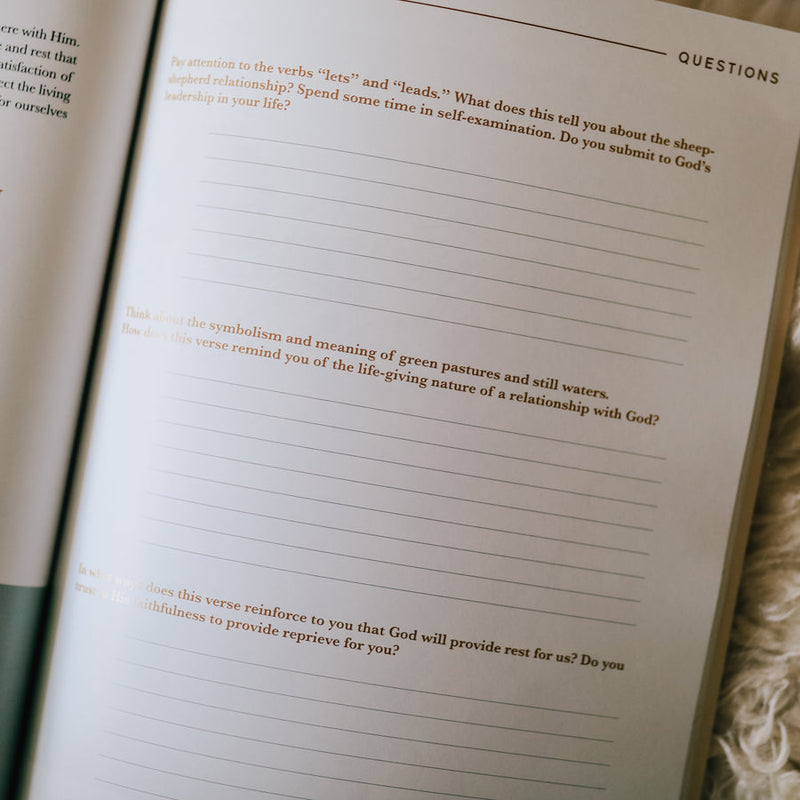 ere with Him.
and rest that
atisfaction of
ect the living
for ourselves
QUESTIONS
Pay attention to the verbs “lets” and “leads.” What does this tell you about the sheep-
shepherd relationship? Spend some time in self-examination. Do you submit to God’s
leadership in your life?
Think about the symbolism and meaning of green pastures and still waters.
How does this verse remind you of the life-giving nature of a relationship with God?
In what ways does this verse reinforce to you that God will provide rest for us? Do you
trust in His faithfulness to provide reprieve for you?